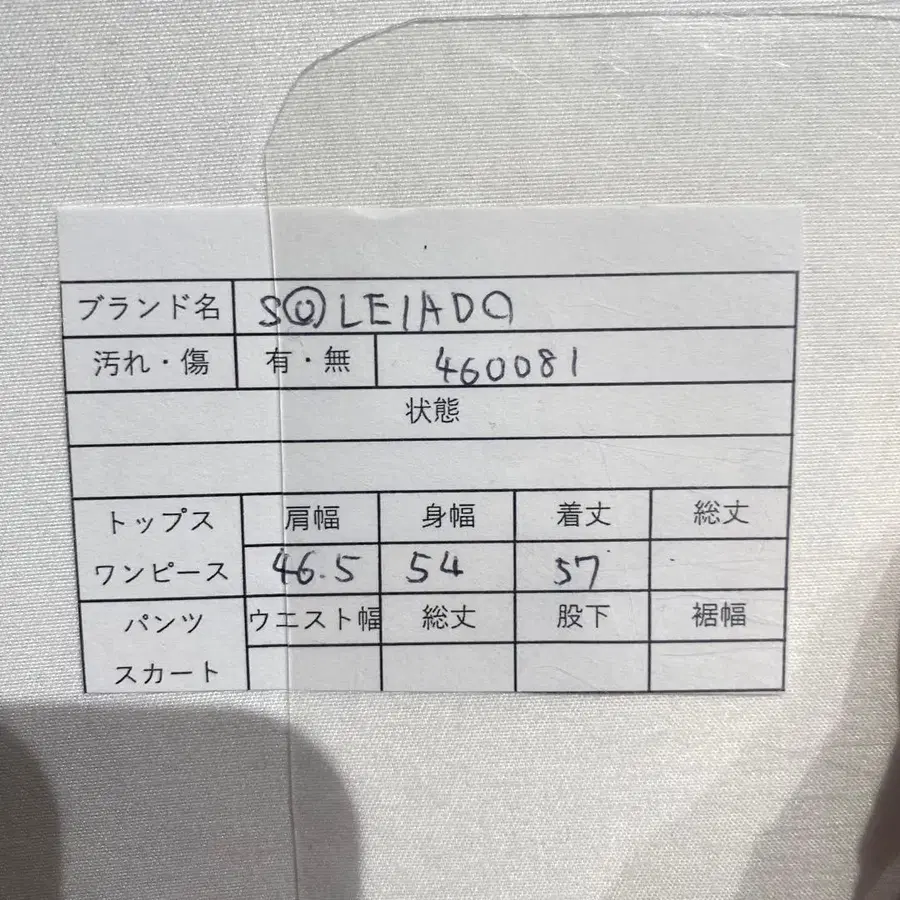 ブランド名 SOLEIADO
汚れ・傷 有・無 460081
状態
トップス 肩幅 身幅 着丈 総丈
ワンピース 46.5 54 57
パンツ ウエスト幅 総丈 股下 裾幅
スカート